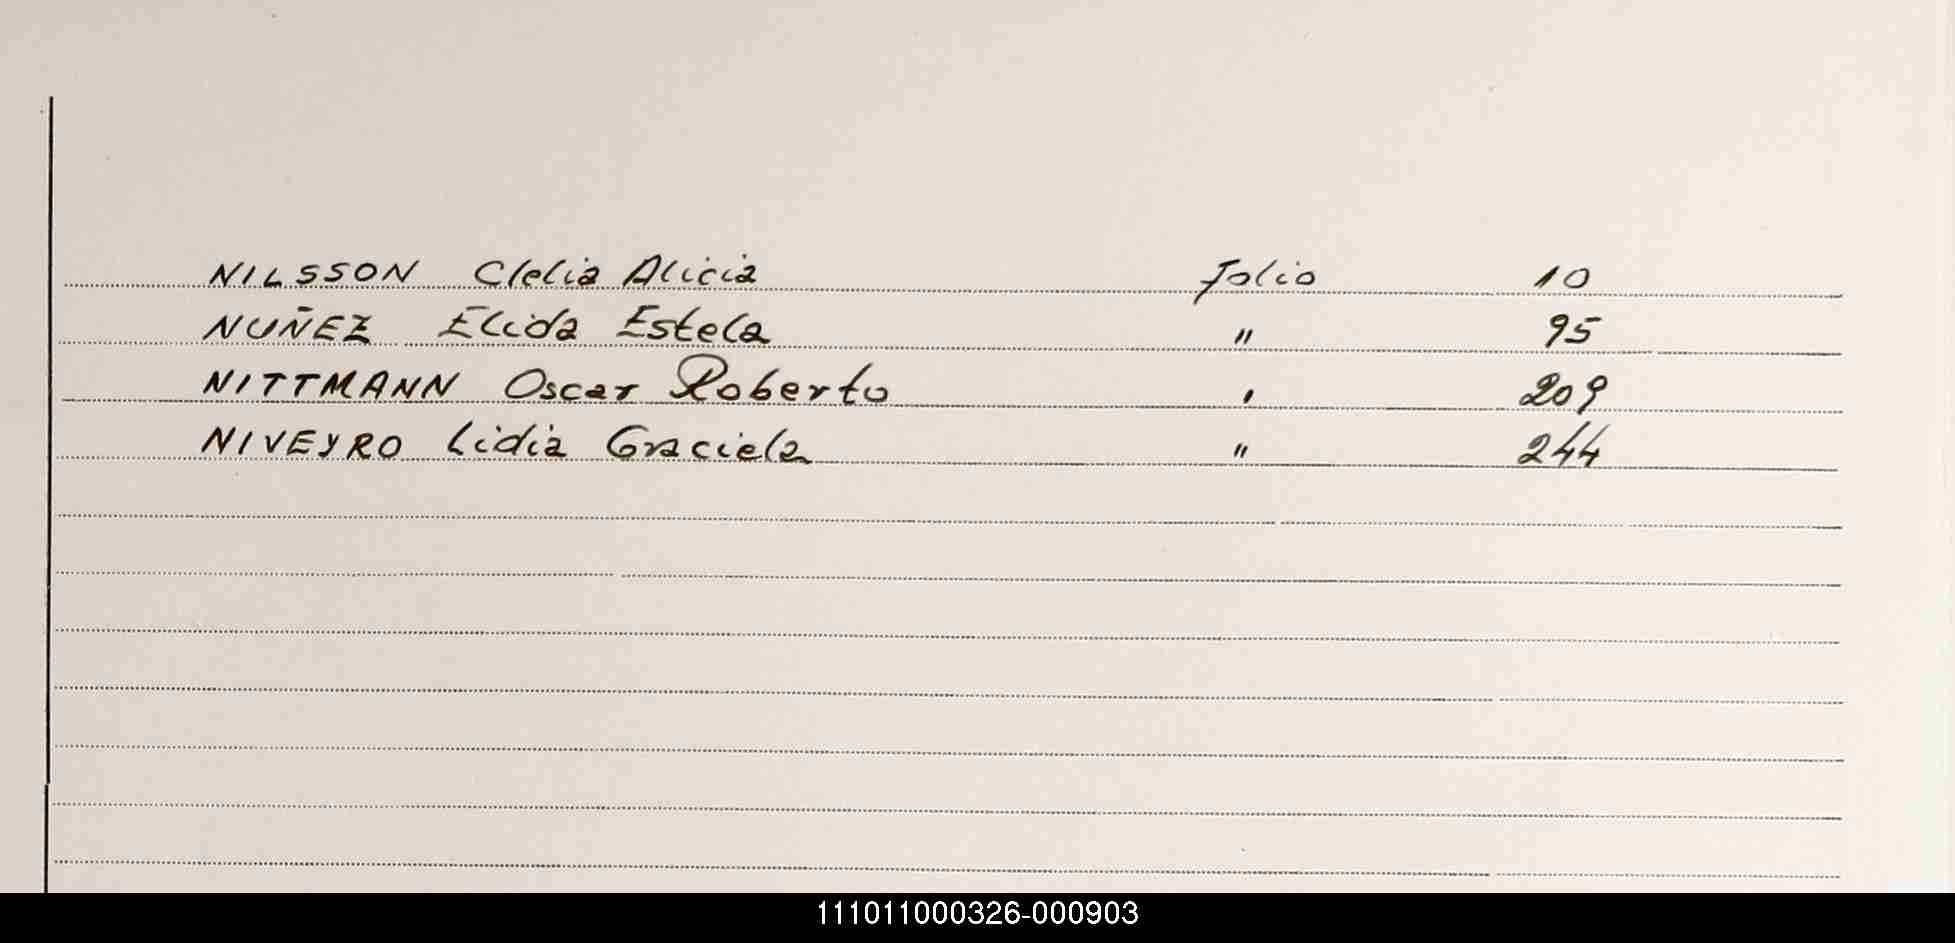 NILSSON Clelia Alicia folio 10
NUÑEZ Elida Estela " 95
NITTMANN Oscar Roberto ' 209
NIVEYRO Lidia Graciela " 244
111011000326-000903